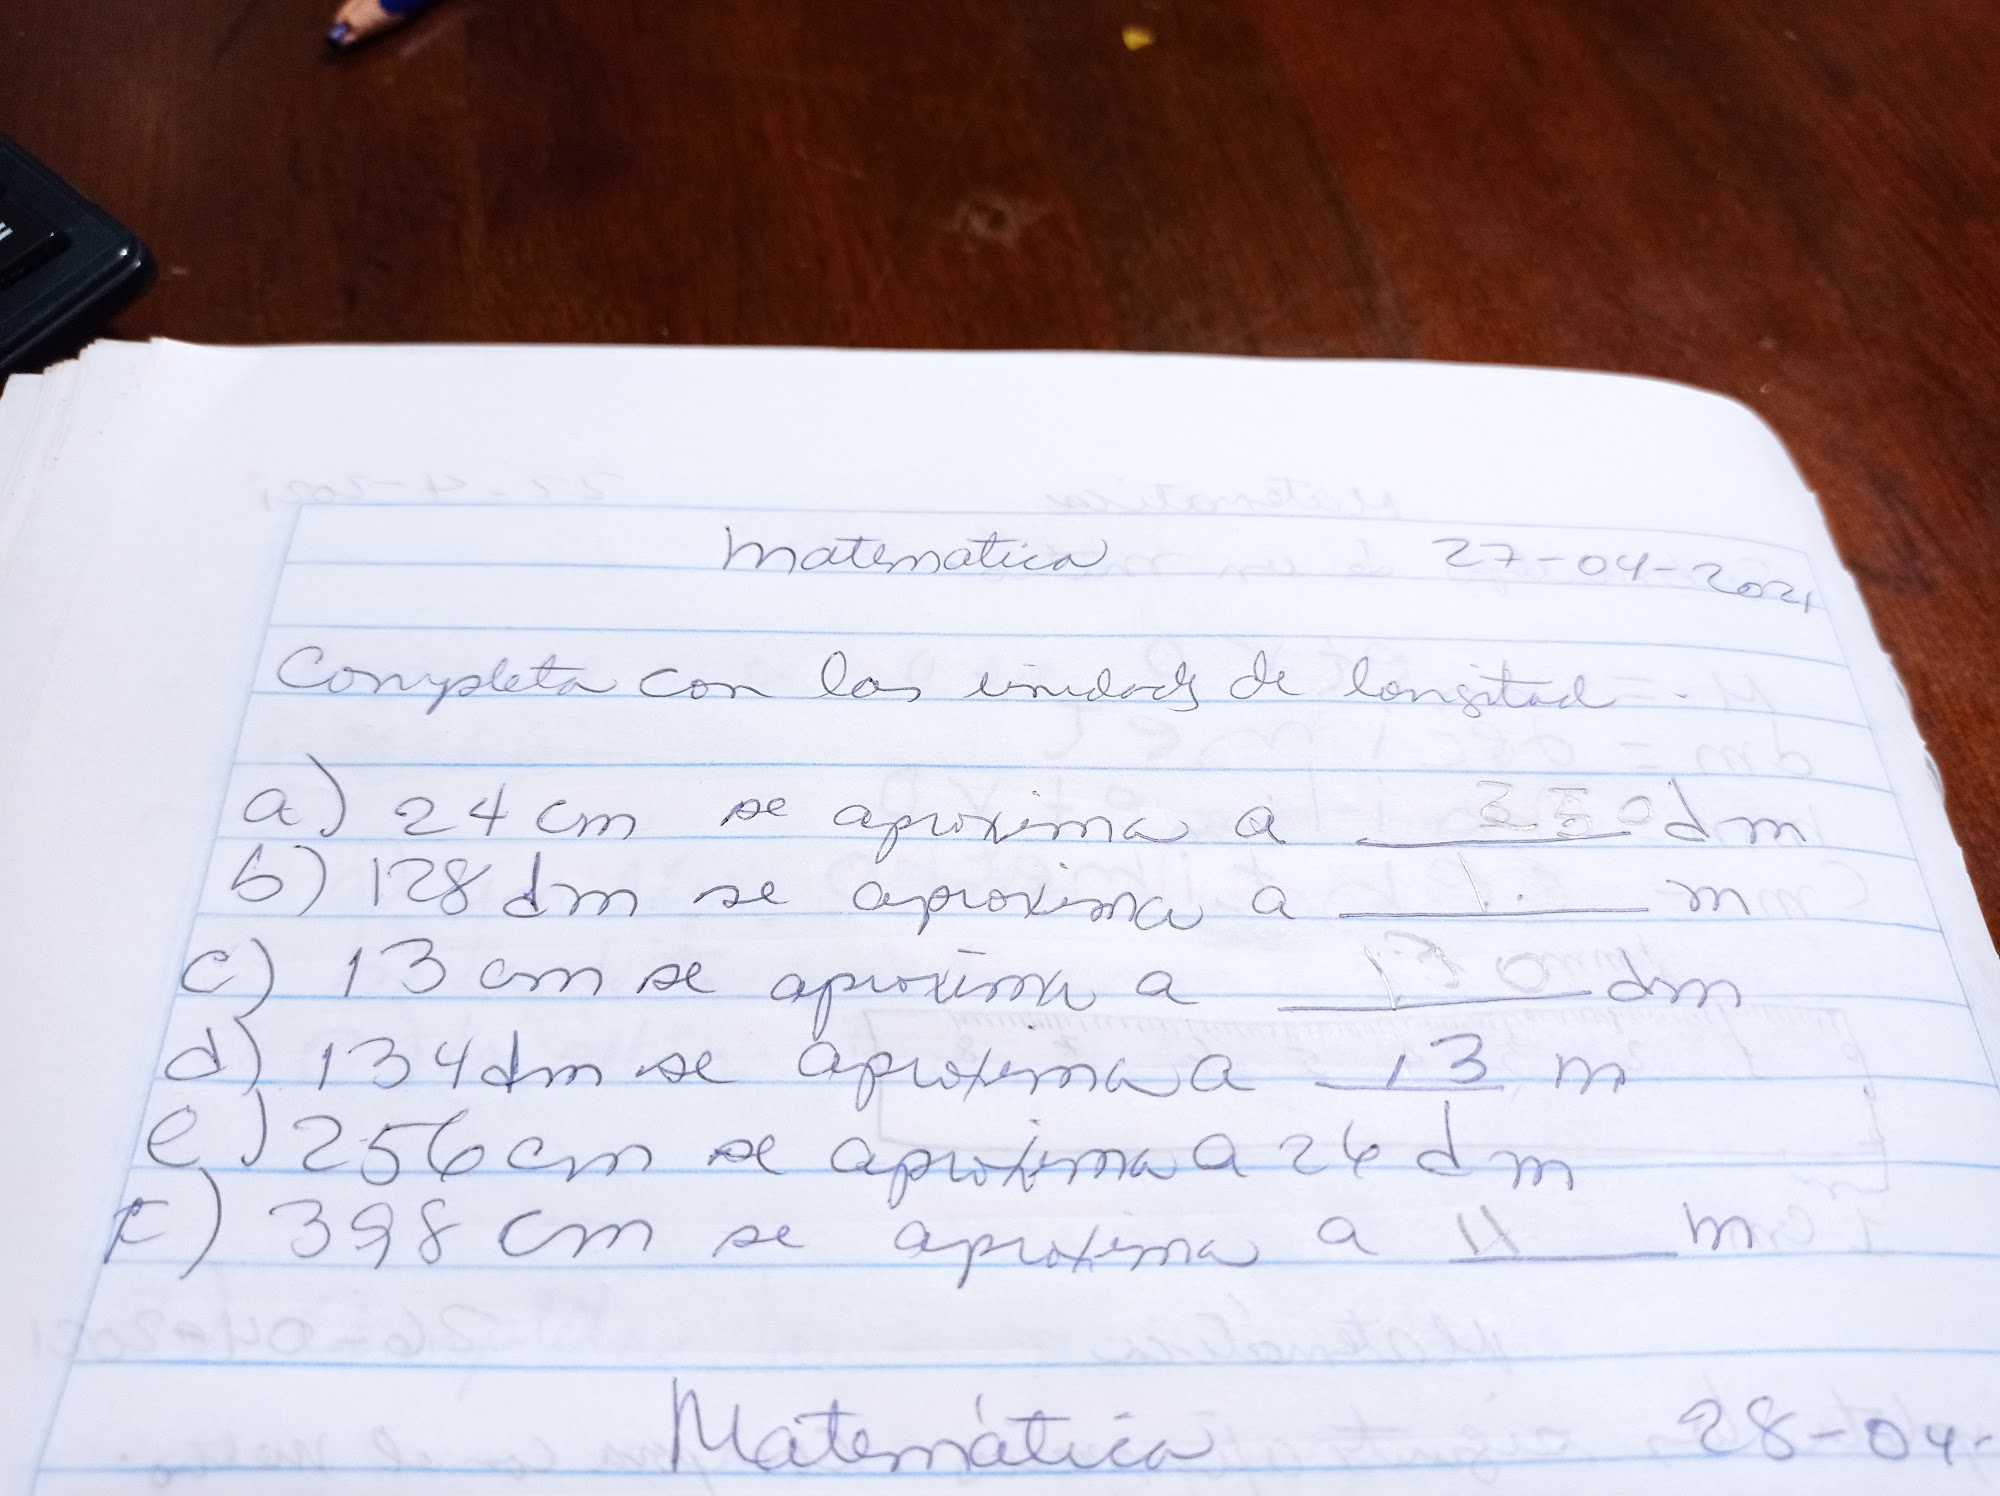 Matematica 27-04-2021
Completa con las unidads de longitud.
a) 24 cm se aproxima a 250 dm
b) 128 dm se aproxima a 1. m
c) 13 cm se aproxima a 130 dm
d) 134 dm se aproxima a 13 m
e) 256 cm se aproxima a 26 dm
F) 398 cm se aproxima a 11 m
Matemática 28-04-